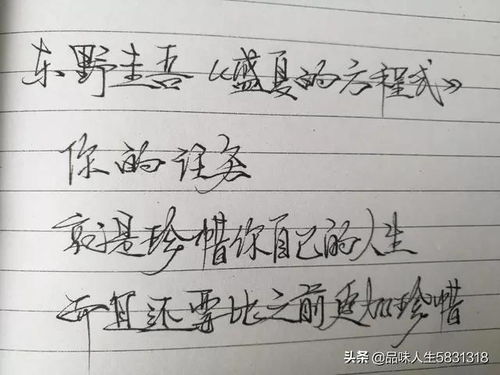 东野圭吾《盛夏的方程式》
你的任务
就是珍惜你自己的人生
而且还要比之前更加珍惜
头条 @品味人生5831318